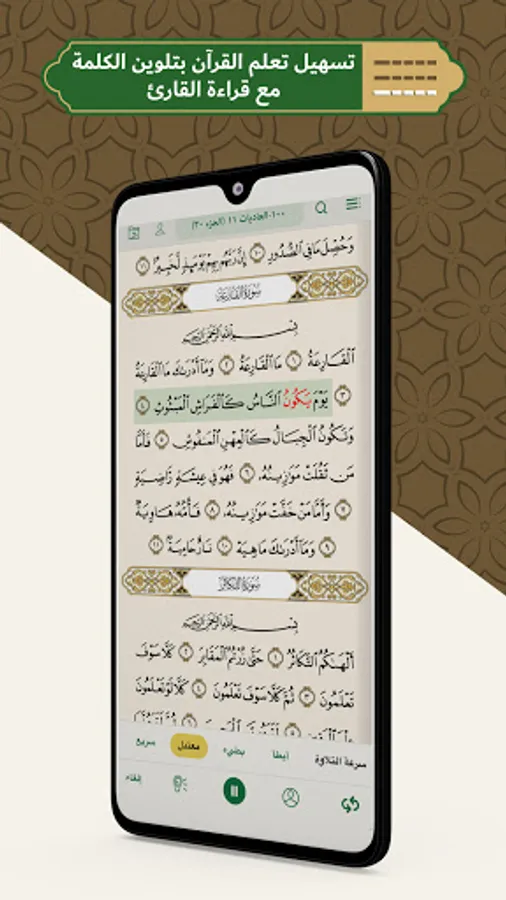 تسهيل تعلم القرآن بتلوين الكلمة
مع قراءة القارئ
١٠٠-العاديات ١١ (الجزء ٣٠)
وَحُصِّلَ مَا فِي ٱلصُّدُورِ ١٠ إِنَّ رَبَّهُم بِهِمْ يَوْمَئِذٍ لَّخَبِيرٌۢ ١١
سُورَةُ القَارِعَةِ
بِسْمِ ٱللَّهِ ٱلرَّحْمَٰنِ ٱلرَّحِيمِ
ٱلْقَارِعَةُ ١ مَا ٱلْقَارِعَةُ ٢ وَمَآ أَدْرَىٰكَ مَا ٱلْقَارِعَةُ
٣ يَوْمَ يَكُونُ ٱلنَّاسُ كَٱلْفَرَاشِ ٱلْمَبْثُوثِ ٤
وَتَكُونُ ٱلْجِبَالُ كَٱلْعِهْنِ ٱلْمَنفُوشِ ٥ فَأَمَّا
مَن ثَقُلَتْ مَوَٰزِينُهُۥ ٦ فَهُوَ فِي عِيشَةٍ رَّاضِيَةٍ
٧ وَأَمَّا مَنْ خَفَّتْ مَوَٰزِينُهُۥ ٨ فَأُمُّهُۥ هَاوِيَةٌ
٩ وَمَآ أَدْرَىٰكَ مَا هِيَهْ ١٠ نَارٌ حَامِيَةٌۢ ١١
سُورَةُ التَّكَاثُرِ
بِسْمِ ٱللَّهِ ٱلرَّحْمَٰنِ ٱلرَّحِيمِ
أَلْهَىٰكُمُ ٱلتَّكَاثُرُ ١ حَتَّىٰ زُرْتُمُ ٱلْمَقَابِرَ ٢ كَلَّا سَوْفَ
تَعْلَمُونَ ٣ ثُمَّ كَلَّا سَوْفَ تَعْلَمُونَ ٤ كَلَّا لَوْ تَعْلَمُونَ
سرعة التلاوة أبطأ بطيء معتدل سريع
إلغاء